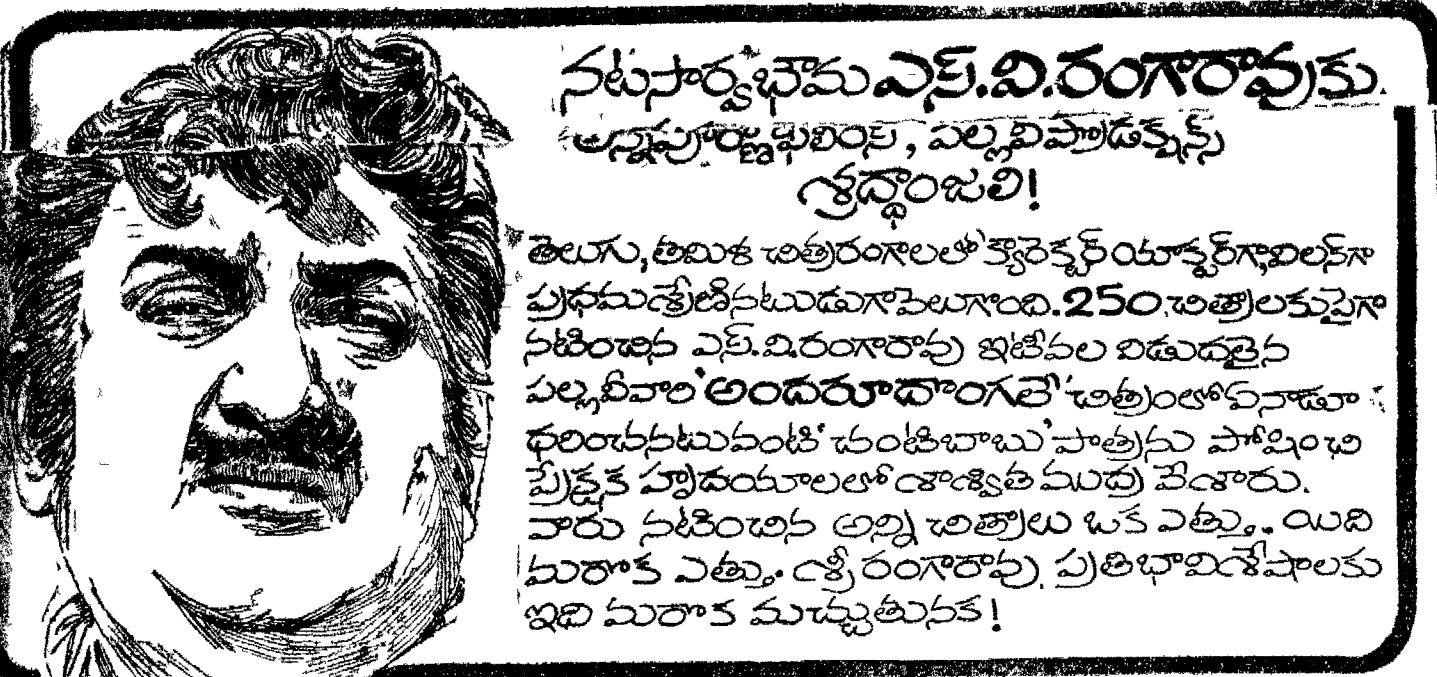 నటసార్వభౌమ ఎస్.వి.రంగారావుకు
అన్నపూర్ణ ఫిలింస్, పల్లవి ప్రొడక్షన్స్
శ్రద్ధాంజలి!
తెలుగు, తమిళ చిత్రరంగాలలో క్యారెక్టర్ యాక్టర్‌గా, విలన్‌గా
ప్రథమశ్రేణి నటుడుగా వెలుగొంది. 250 చిత్రాలకుపైగా
నటించిన ఎస్.వి.రంగారావు ఇటీవల విడుదలైన
పల్లవీవారి 'అందరూదొంగలే' చిత్రంలో ఏనాడూ
ధరించనటువంటి 'చంటిబాబు' పాత్రను పోషించి
ప్రేక్షక హృదయాలలో శాశ్విత ముద్ర వేశారు.
వారు నటించిన అన్ని చిత్రాలు ఒక ఎత్తు.. యిది
మరొక ఎత్తు. శ్రీ రంగారావు ప్రతిభావిశేషాలకు
ఇది మరొక మచ్చుతునక!